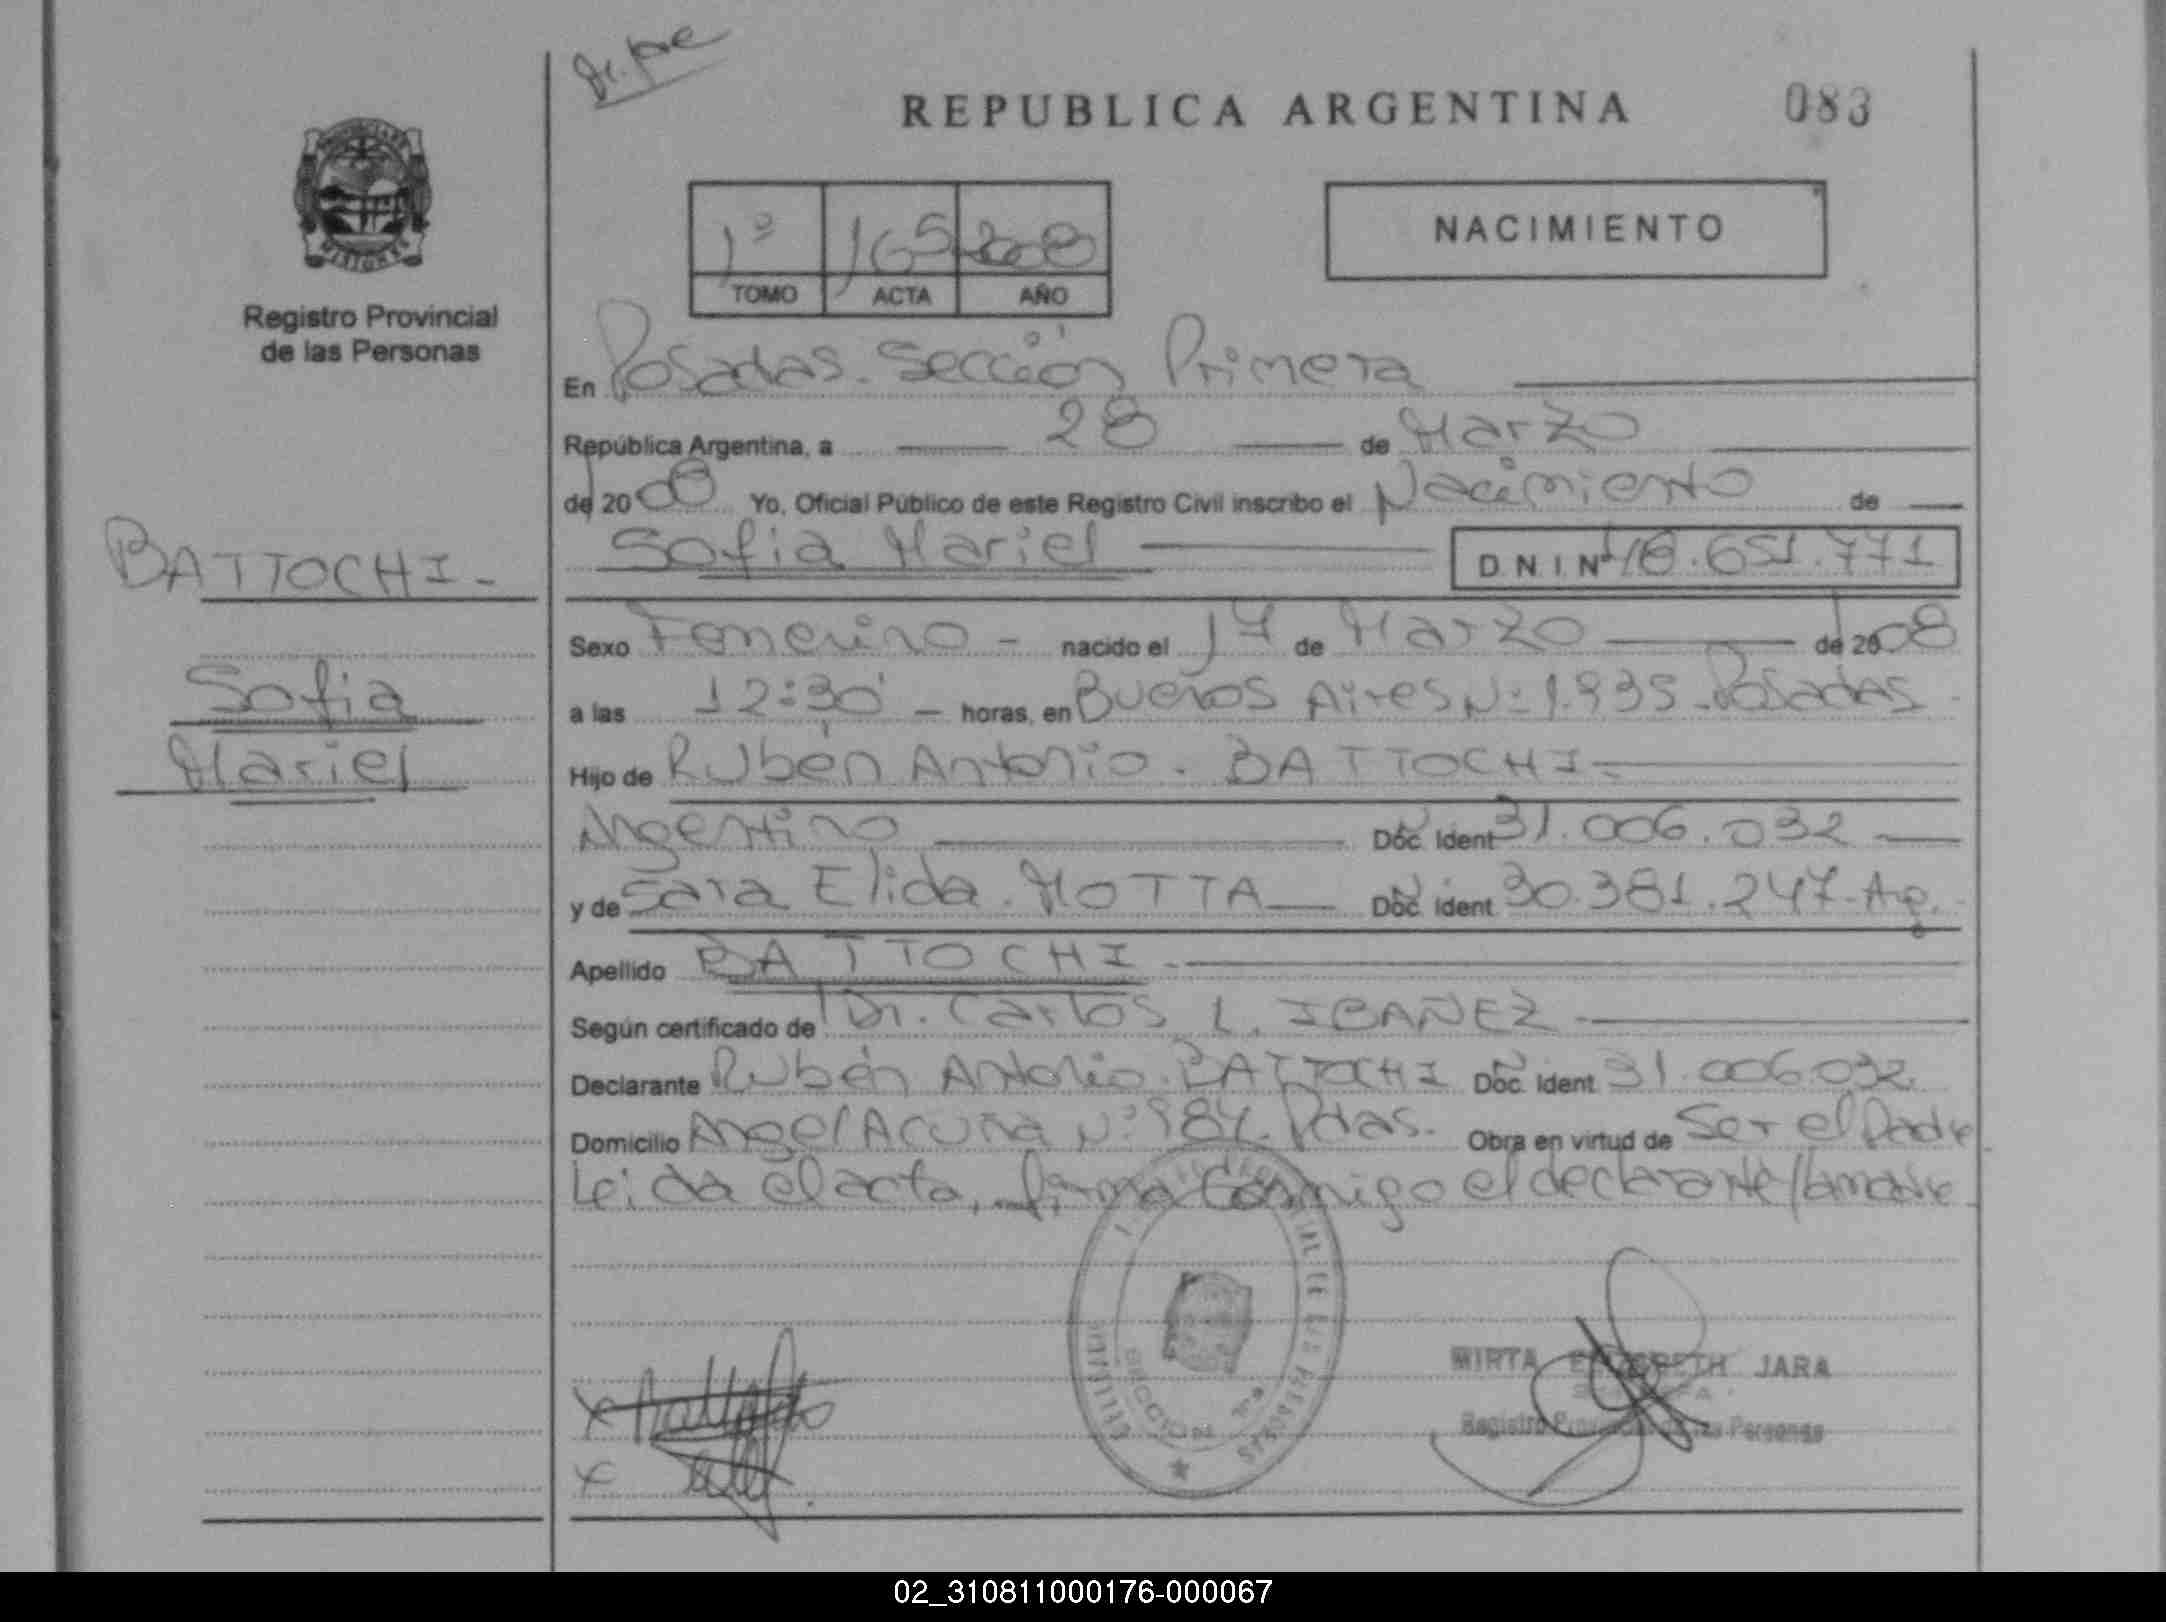 Dr. Jose
REPUBLICA ARGENTINA
083
1º 165 2008
TOMO ACTA AÑO
NACIMIENTO
Registro Provincial
de las Personas
En Posadas. Sección Primera
República Argentina, a 28 de Marzo
de 2008 Yo, Oficial Público de este Registro Civil inscribo el Nacimiento de
Sofia Mariel D.N.I. Nº 48.651.771
BATTOCHI -
Sofia
Mariel
Sexo Femenino - nacido el 17 de Marzo de 2008
a las 12:30 - horas, en Buenos Aires Nº 1.935 - Posadas
Hijo de Rubén Antonio. BATTOCHI
Argentino Doc. Ident 31.006.032
y de Sara Elida. MOTTA Doc. Ident. 30.381.247-Arg.
Apellido BATTOCHI
Según certificado de Dr. Carlos L. IBAÑEZ
Declarante Rubén Antonio. BATTOCHI Doc. Ident. 31.006.032
Domicilio Angel Acuña Nº 984. Pdas. Obra en virtud de Ser el Padre
Leida el acta, firma conmigo el declarante/la madre
SECCION 1ra
MIRTA ELIZABETH JARA
Registro Provincial de las Personas
02_310811000176-000067